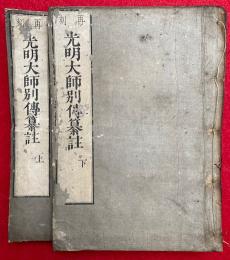 再刻
光明大師別傳纂註
上
再刻
光明大師別傳纂註
下